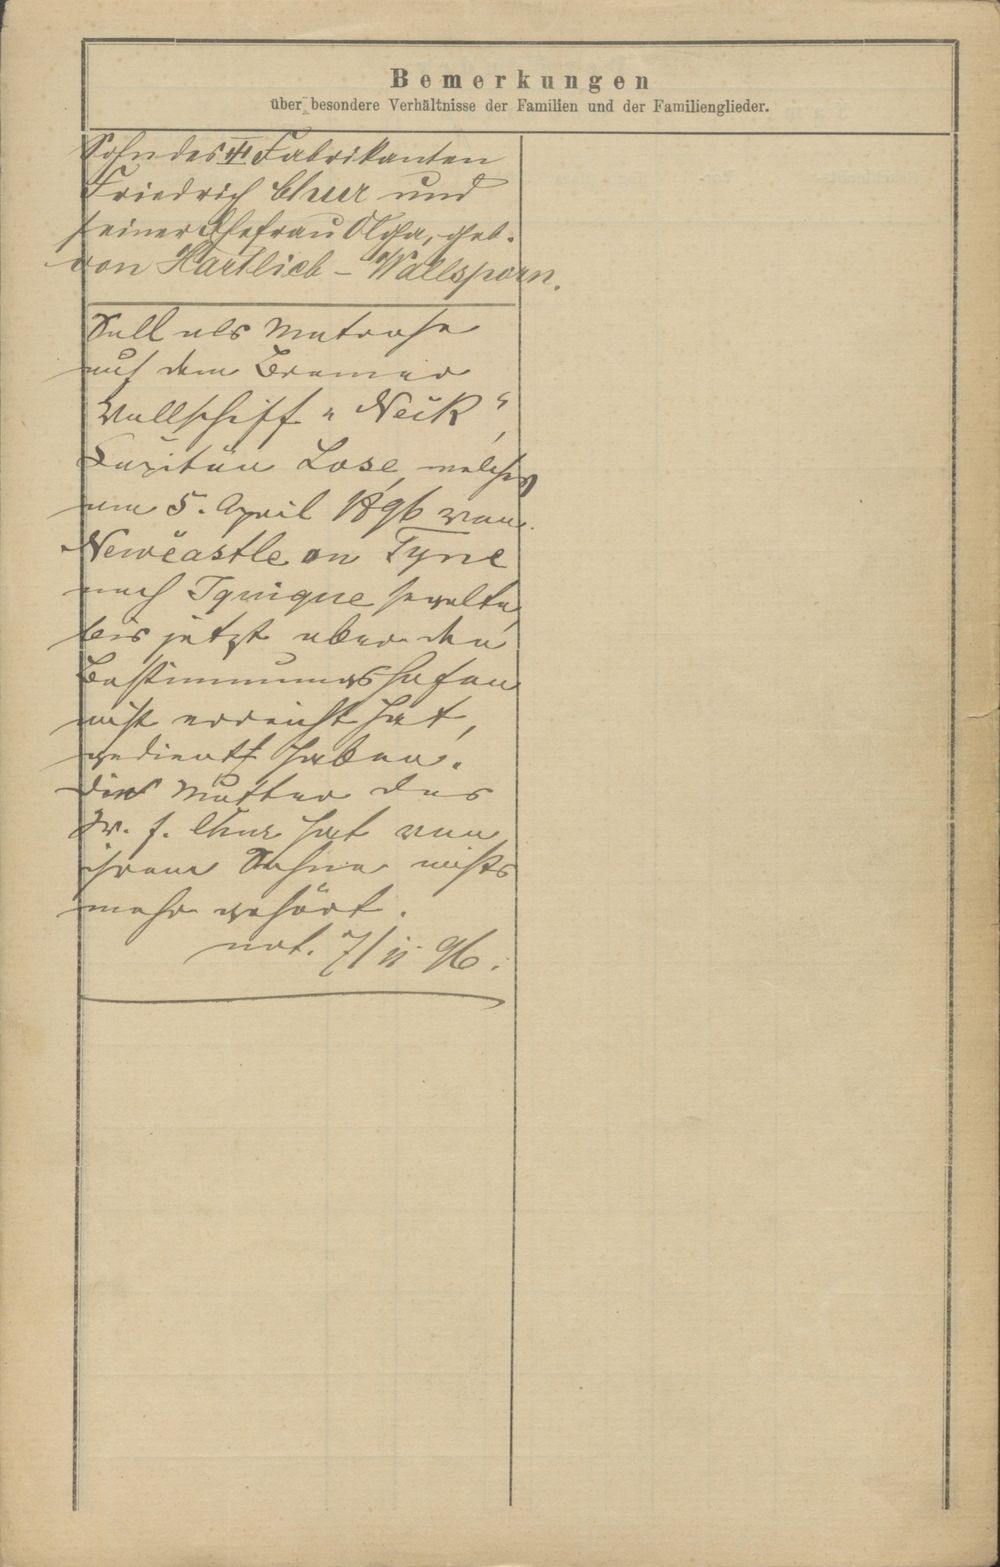 Bemerkungen
über besondere Verhältnisse der Familien und der Familienglieder.
Sohn des Fabrikanten
Friedrich und
seiner Ehefrau Olga, geb.
von Hartlieb-Wallsporn.
Soll als Matrose
auf dem Bremer
Vollschiff "Neck",
Capitän Lose, welches
am 5. April 1896 von
Newcastle on Tyne
nach Iquique segelte,
bis jetzt aber den
Bestimmungshafen
nicht erreicht hat,
gedient haben.
Die Mutter des
hat von
ihrem Sohne nichts
mehr gehört.
not. 7/11 96.